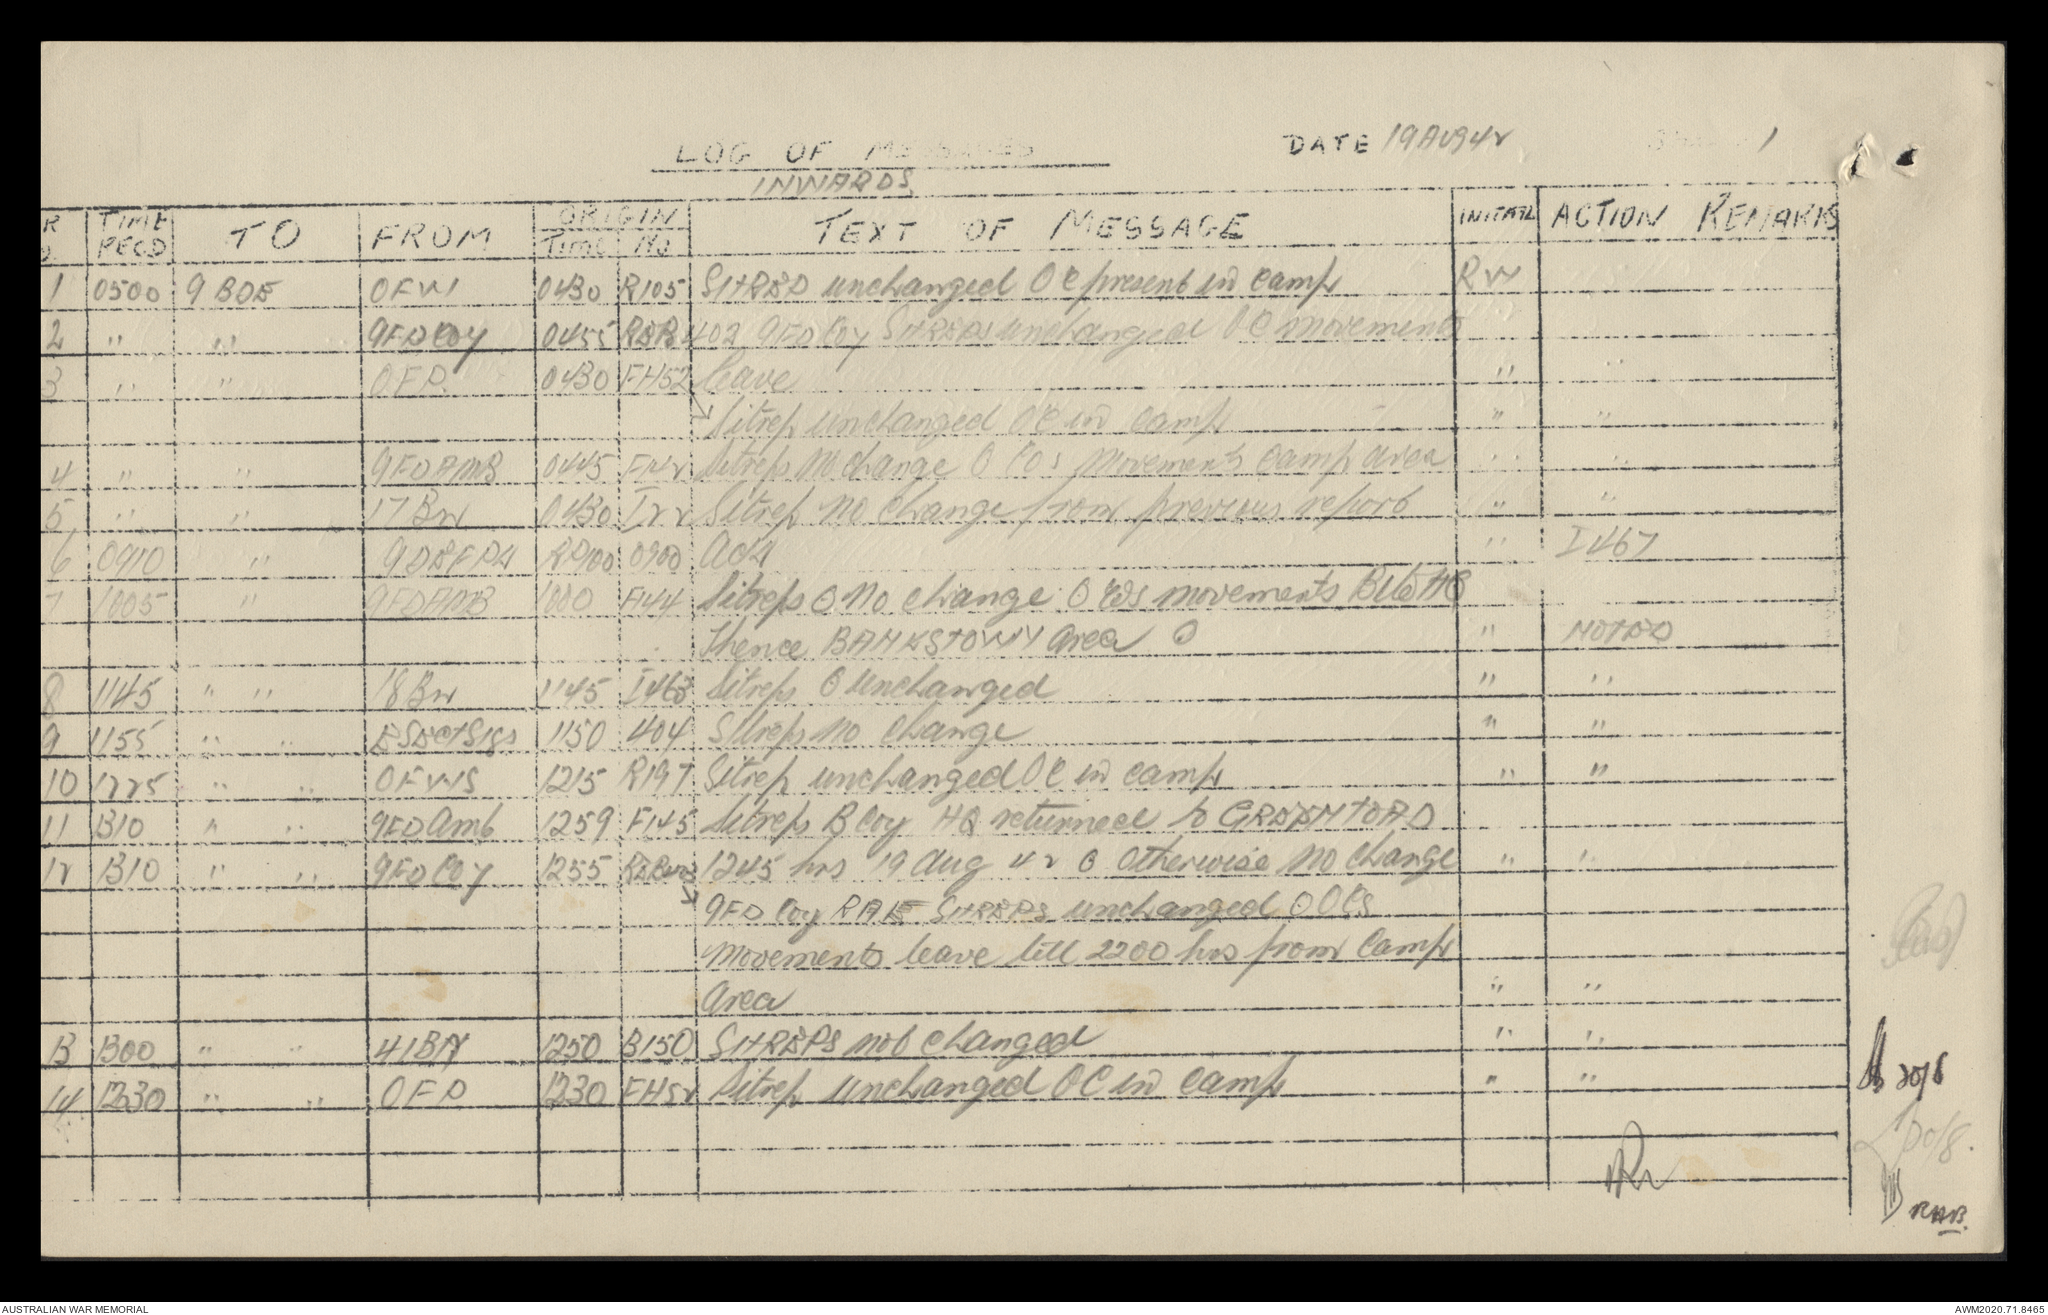 LOG OF MESSAGES DATE 19AUG42 1
INWARDS
TIME RECD TO FROM ORIGIN TIME NO TEXT OF MESSAGE INITIAL ACTION REMARKS
1 0500 9 BDE OFW 0430 R105 SITREP unchanged OC present in camp RW
2 " " 9FD Coy 0455 402 9FD Coy SITREPS unchanged OC movements
3 " " OFP 0430 FH52 leave " "
Sitrep unchanged OC in camp " "
4 " " 9FDAMB 0445 F142 Sitreps No change O COs movements camp area " "
5 " " 17 Bn 0430 I22 Sitrep no change from previous report " "
6 0910 " 0900 " I467
7 1005 " 9FDAMB 1000 Sitreps O No change O COs movements Bde HQ
thence BANKSTOWN area O " NOTED
8 1145 " " 18 Bn 1145 I463 Sitreps O unchanged " "
9 1155 " " Sigs 1150 404 Sitreps no change " "
10 1225 " " OFWS 1215 R197 Sitrep unchanged OC in camp " "
11 1310 " " 9FD Amb 1259 F145 Sitreps B Coy HQ returned to
12 1310 " " 9FD Coy 1255 1245 hrs 19 Aug 42 O Otherwise No change " "
9FD Coy RAE SITREPS unchanged O OCs
movements leave till 2200 hrs from Camp
area " "
13 1300 " " 41BN 1250 B150 SITREPS not changed " "
14 1230 " " OFP 1230 FH52 Sitrep unchanged OC in camp " "
20/8
20/8.
RAB.
AUSTRALIAN WAR MEMORIAL AWM2020.71.8465